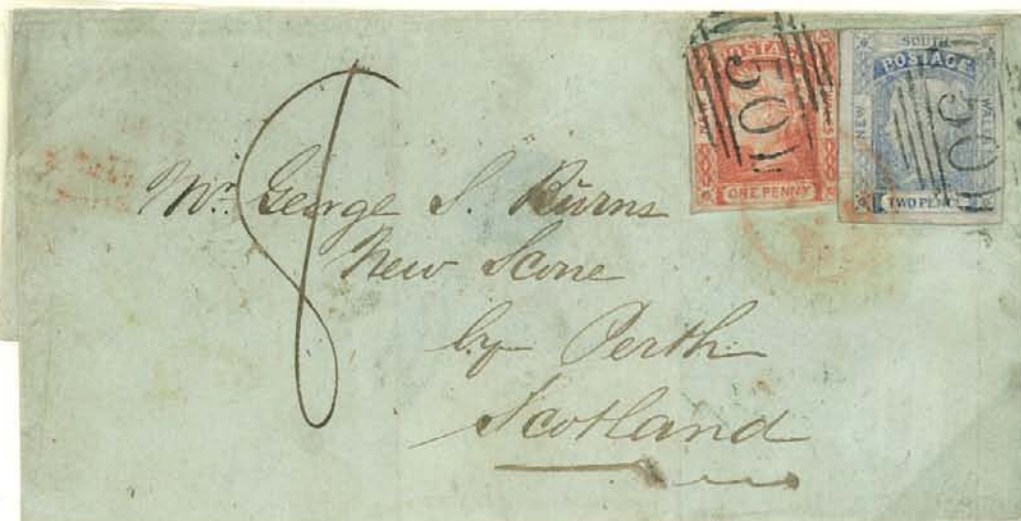 POSTAGE
ONE PENNY
SOUTH
POSTAGE
NEW
WALES
TWO PENCE
50
50
8
Mr. George S. Burns
New Scone
by Perth
Scotland